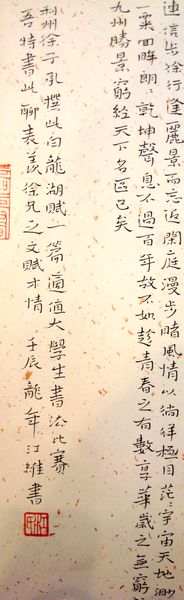 連信步徐行逢麗景而忘返閑庭漫步睹風情以徜徉極目茫茫宇宙天地渺
一粟回眸朗朗乾坤聲息不過百年故不如趁青春之有數享華歲之無窮
九州勝景窮經天下名區已矣
利州徐子孔撰此白龍湖賦一篇適值大學生書法比賽
吾特書此聊表羨徐兄之文賦才情 壬辰龍年江維書